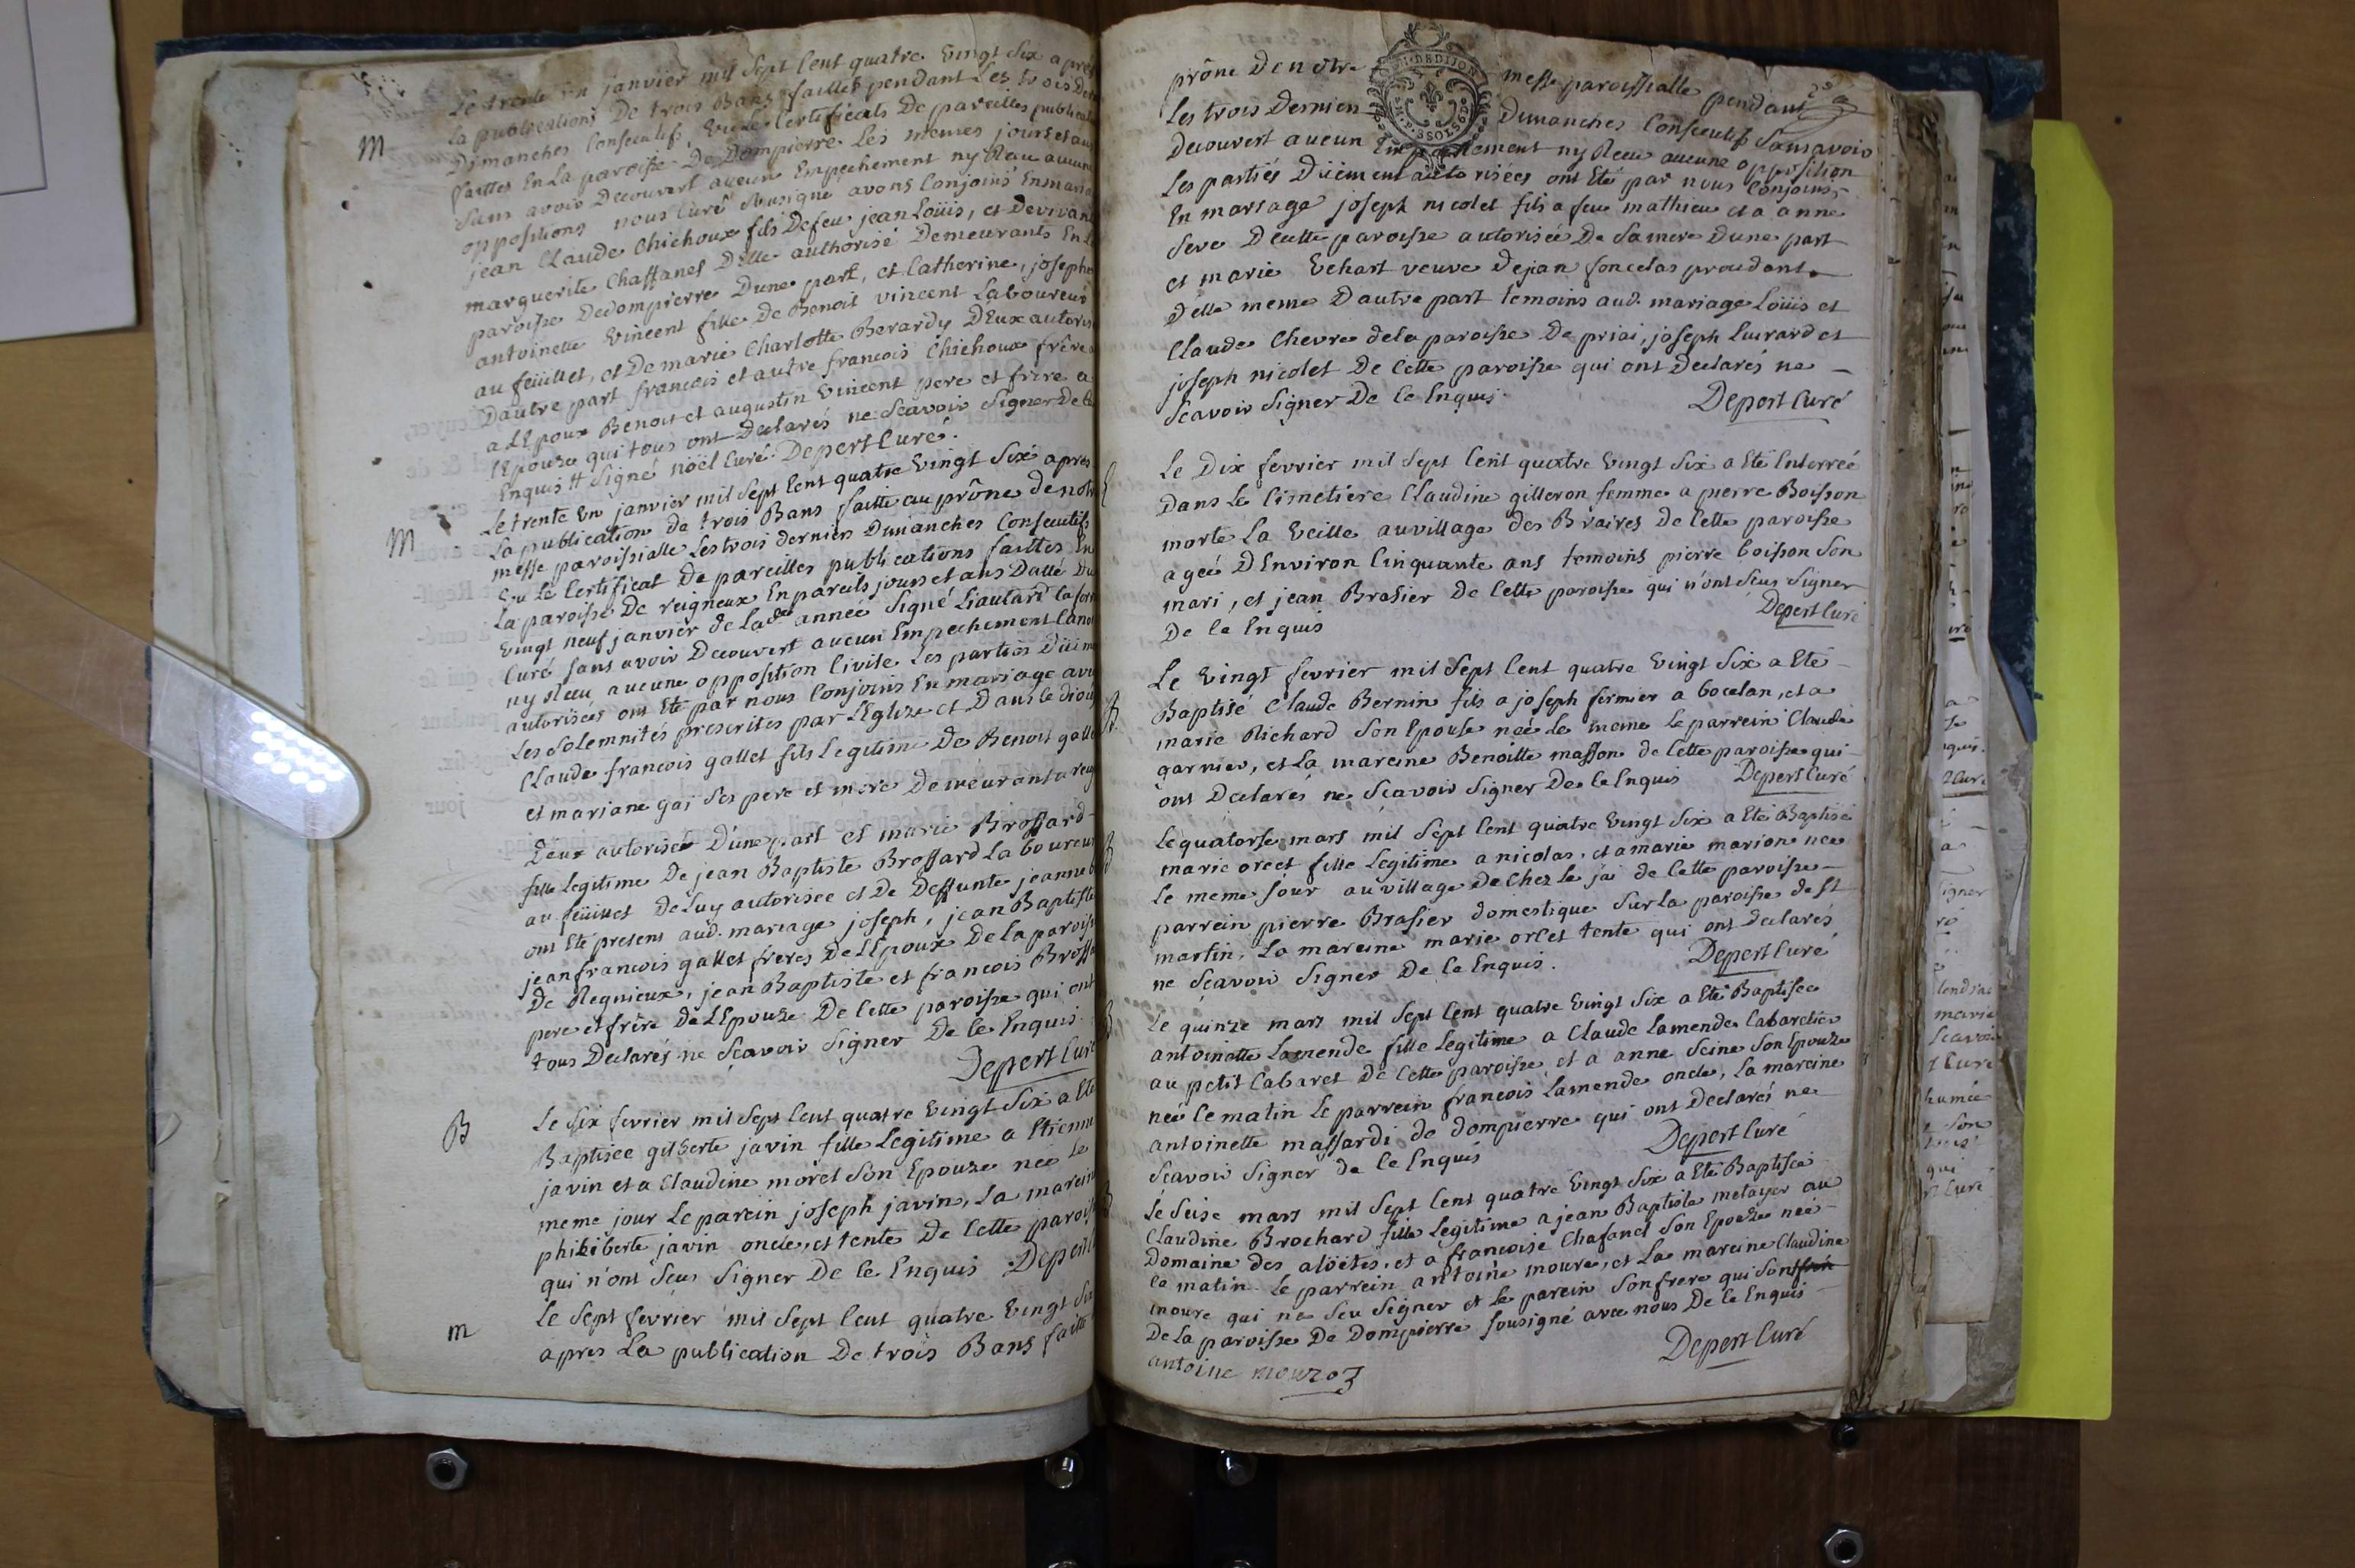 M
Le trente un janvier mil sept Cent quatre vingt six apres
la publications De trois Bans faittes pendant Les trois Der
Dimanches Consecutifs, vu le Certificats De pareilles publicat
faittes En La paroisse De Dompierre Les memes jours et an
sans avoir Decouvert aucun Empechement ny Reçu aucune
oppositions nous Curé soussigné avons Conjoins En maria
jean Claude Chichoux fils De feu jean Loüis, et De vivan
marguerite Chaffanel D'elle authorisé Demeurants En la
paroisse De dompierre Dune part, et Catherine, josephe
antoinette vincent fille De Benoit vincent Laboureur
au feüillet, et De marie Charlotte Berardy D'Eux autoris
D'autre part francois et autre francois Chichoux frere
a L'Epoux Benoit et augustin vincent pere et frere a
l'Epouze qui tous ont Declarés ne Scavoir Signer De ce
Enquis # Signé noël Curé. Depert Curé.
M
Le trente un janvier mil sept Cent quatre vingt Six apres
La publication de trois Bans faitte au prône de notre
messe paroissialle Les trois derniers Dimanches Consecutifs
vu le Certificat De pareilles publications faittes En
La paroisse De reigneux En pareils jours et ans Datté Du
vingt neuf janvier de La de année Signé Liautard
Curé sans avoir Decouvert aucun Empechement Cano
ny Reçu aucune opposition Civile Les parties Düëm
autorisées ont Eté par nous Conjoins En mariage avec
Les Solemnités prescrites par L'Eglize et Dans le dio
Claude francois gallet fils legitime De Benoit galle
et mariane gai Ses pere et mere Demeurant a reig
Deux autorisés D'une part et marie Brossard
fille legitime De jean Baptiste Brossard Laboureur
au feüillet De Luy autorisee et De Deffunte jeanne
ont Eté presens aud. mariage joseph, jean Baptiste
jean francois gallet freres De L'Epoux De la paroisse
De Regnieux, jean Baptiste et francois Brossa
pere et frere De L'Epouze De Cette paroisse qui ont
tous Declarés ne Scavoir Signer De Ce Enquis.
Depert Curé
B
Le Six fevrier mil Sept Cent quatre vingt Six a Eté
Baptisée gilberte javin fille Legitime a Etienne
javin et a Claudine moret Son Epouze née Le
meme jour Le parein joseph javin, La mareine
philiberte javin oncle, et tente De Cette paroisse
qui n'ont Seus Signer De Ce Enquis Depert C
m
Le Sept fevrier mil Sept Cent quatre vingt Six
apres La publication De trois Bans faitte
prône De notre messe paroissialle pendant
Les trois Dernien Dimanches Consecutifs Sans avoir
Decouvert aucun Empechement ny Reçu aucune opposition
Les partiés Düëment autorisées ont Eté par nous Conjoins
En mariage joseph nicolet fils a feu mathieu et a anne
Seve De Cette paroisse autorisée De Sa mere Dune part
et marie Echart veuve De jean foncelas proudant
D'elle meme D'autre part temoins aud. mariage Loüis et
Claude Chevre dela paroisse De priai, joseph Luirard et
joseph nicolet De Cette paroisse qui ont Declarés ne
Scavoir Signer De Ce Enquis.
Depert Curé
Le Dix fevrier mil Sept Cent quatre vingt Six a Eté Enterreé
Dans Le Cimetiere Claudine gilleron femme a pierre Boisson
morte La veille au village des Braires De Cette paroisse
ageé D'Environ Cinquante ans temoins pierre boisson Son
mari, et jean Brasier De Cette paroisse qui n'ont Seus Signer
De Ce Enquis
Depert Curé
Le vingt fevrier mil Sept Cent quatre vingt Six a Eté
Baptisé Claude Bernin fils a joseph fermier a bocelan, et a
marie Richard Son Epouse neé le meme le parrein Claude
garnier, et La mareine Benoitte masson de Cette paroisse qui
ont Declarés ne Scavoir Signer De Ce Enquis Depert Curé
Le quatorse mars mil Sept Cent quatre vingt Six a Eté Baptisé
marie orcet fille Legitime a nicolas, et a marie marion née
Le meme Jour au village De Chez Le jai de Cette paroisse
parrein pierre Brasier domestique Sur La paroisse de St
martin, La mareine marie orcet tente qui ont declarés
ne Scavoir Signer De Ce Enquis.
Depert Curé
Le quinze mars mil Sept Cent quatre vingt Six a Eté Baptisée
antoinette Lamende fille Legitime a Claude Lamende Cabaretier
au petit Cabaret De Cette paroisse, et a anne Seine Son Epouze
neé le matin Le parrein francois Lamende oncle, La mareine
antoinette massardi de dompierre qui ont Declarés ne
Scavoir Signer de Ce Enquis
Depert Curé
Le Seise mars mil Sept Cent quatre vingt Six a Eté Baptisée
Claudine Brochard fille Legitime a jean Baptiste metayer au
Domaine Des aloëtes, et a francoise Chafanel Son Epouze neé
le matin Le parrein antoine moure, et La mareine Claudine
moure qui ne Seu Signer et le parein Son frere qui Sont
De La paroisse De Dompierre Sousigné avec nous De Ce Enquis
antoine mouroz
Depert Curé